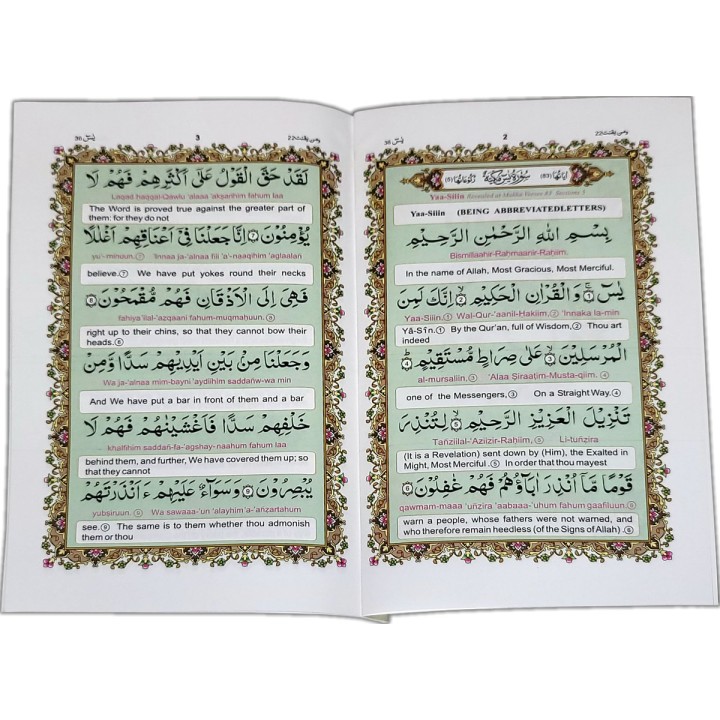 وَمَن يَّقْنُتْ 22
2
يٰسٓ 36
اٰيَاتُهَا (83) سُوْرَةُ يٰسٓ مَكِّيَّةٌ رُكُوْعَاتُهَا (5)
Yaa-Siiin Revealed at Makka Verses 83 Sections 5
Yaa-Siiin (BEING ABBREVIATEDLETTERS)
بِسْمِ اللّٰهِ الرَّحْمٰنِ الرَّحِيْمِ
Bismillaahir-Rahmaanir-Raḥim.
In the name of Allah, Most Gracious, Most Merciful.
يٰسٓ ۚ① وَالْقُرْاٰنِ الْحَكِيْمِ ② اِنَّكَ لَمِنَ
Yaa-Siiin.① Wal-Qur-'aanil-Hakiim,② 'Innaka la-min
Yâ-Sîn.① By the Qur'an, full of Wisdom,② Thou art
indeed
الْمُرْسَلِيْنَ ③ عَلٰى صِرَاطٍ مُّسْتَقِيْمٍ ④
al-mursaliin,③ 'Alaa Ṣiraaṭim-Musta-qiim.④
one of the Messengers,③ On a Straight Way.④
تَنْزِيْلَ الْعَزِيْزِ الرَّحِيْمِ ⑤ لِتُنْذِرَ
Tañziilal-'Aziizir-Raḥiim,⑤ Li-tuñzira
(It is a Revelation) sent down by (Him), the Exalted in
Might, Most Merciful .⑤ In order that thou mayest
قَوْمًا مَّآ اُنْذِرَ اٰبَآؤُهُمْ فَهُمْ غٰفِلُوْنَ ⑥
qawmam-maaa 'uñzira 'aabaaa-'uhum fahum gaafiluun.⑥
warn a people, whose fathers were not warned, and
who therefore remain heedless (of the Signs of Allah) .⑥
وَمَن يَّقْنُتْ 22
3
يٰسٓ 36
لَقَدْ حَقَّ الْقَوْلُ عَلٰٓى اَكْثَرِهِمْ فَهُمْ لَا
Laqad haqqal-Qawlu 'alaaa 'akṣarihim fahum laa
The Word is proved true against the greater part of
them: for they do not
يُؤْمِنُوْنَ ⑦ اِنَّا جَعَلْنَا فِيْٓ اَعْنَاقِهِمْ اَغْلٰلًا
yu'-minuun.⑦ 'Innaa ja-'alnaa fiii 'a'-naaqihim 'aglaalañ
believe.⑦ We have put yokes round their necks
فَهِيَ اِلَى الْاَذْقَانِ فَهُمْ مُّقْمَحُوْنَ ⑧
fahiya 'ilal-'azqaani fahum-muqmaḥuun.⑧
right up to their chins, so that they cannot bow their
heads.⑧
وَجَعَلْنَا مِنْۢ بَيْنِ اَيْدِيْهِمْ سَدًّا وَّمِنْ
Wa ja-'alnaa mim-bayni 'aydiihim saddañw-wa min
And We have put a bar in front of them and a bar
خَلْفِهِمْ سَدًّا فَاَغْشَيْنٰهُمْ فَهُمْ لَا
khalfihim saddañ-fa-'agshay-naahum fahum laa
behind them, and further, We have covered them up; so
that they cannot
يُبْصِرُوْنَ ⑨ وَسَوَآءٌ عَلَيْهِمْ ءَاَنْذَرْتَهُمْ
yubṣiruun.⑨ Wa sawaaa-'un 'alayhim 'a-'añzartahum
see.⑨ The same is to them whether thou admonish
them or thou